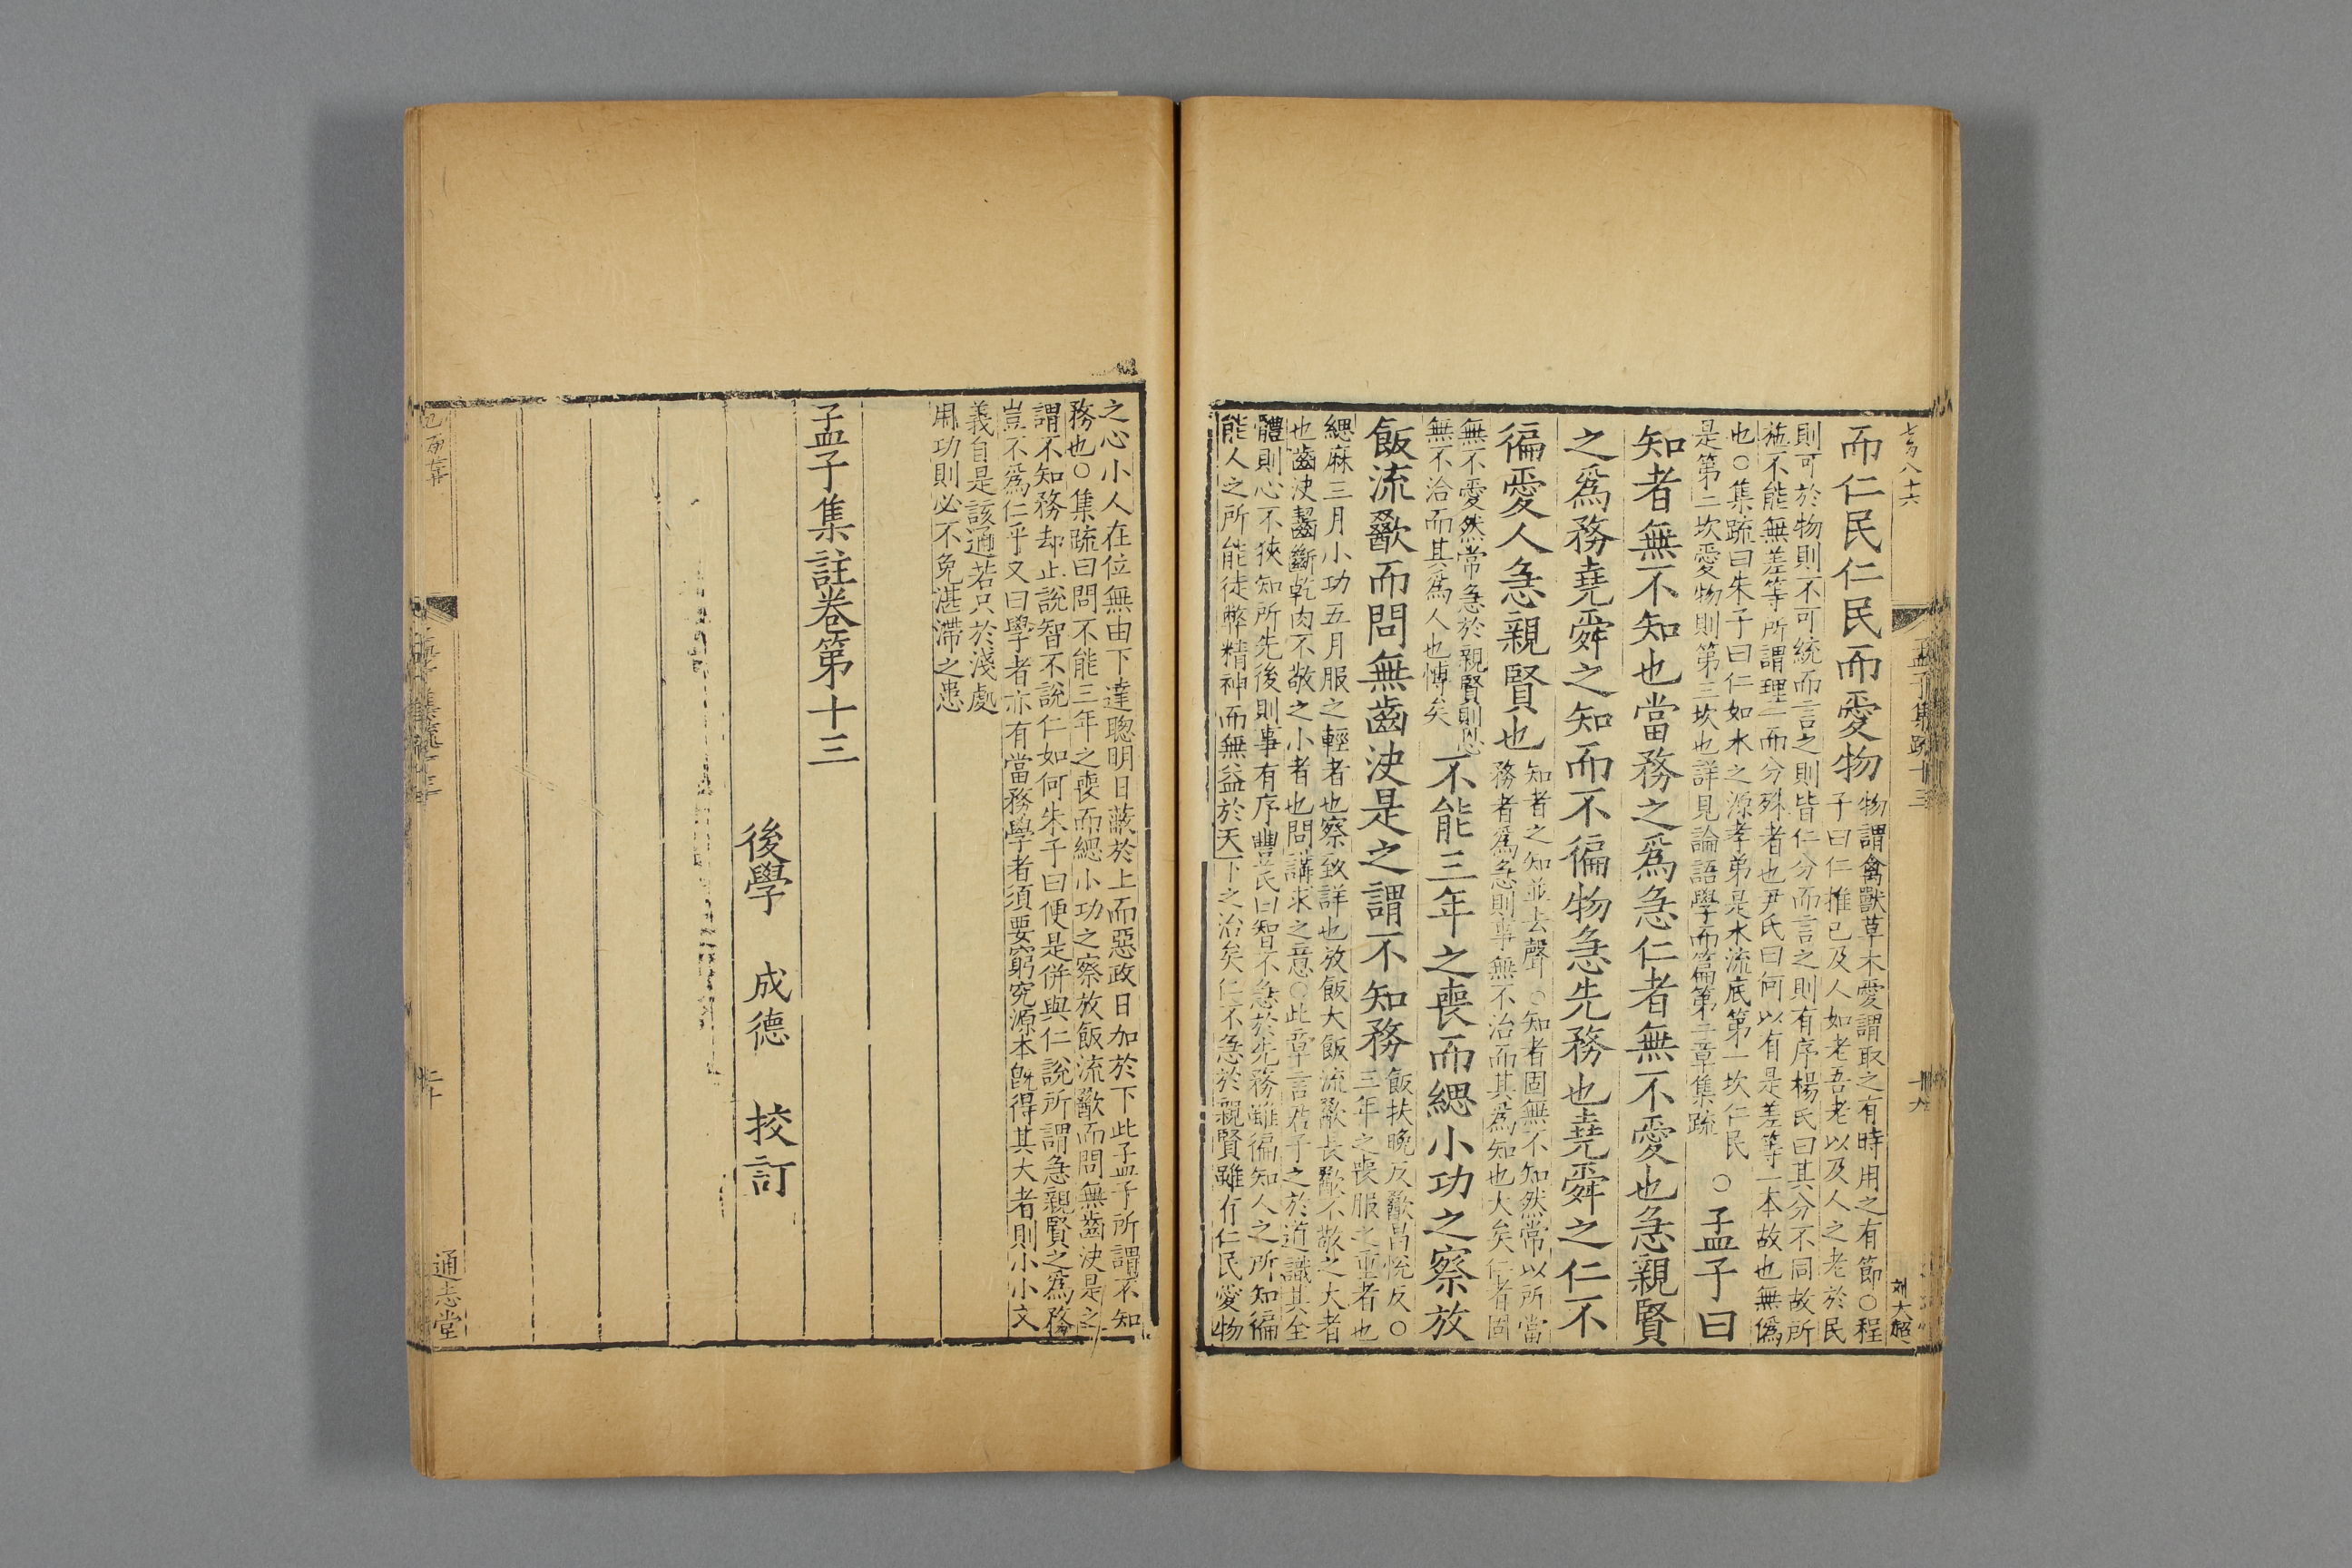 七百八十六
孟子集疏十三
十九
刘大嫆
而仁民仁民而愛物
物謂禽獸草木愛謂取之有時用之有節○程
子曰仁推已及人如老吾老以及人之老於民
則可於物則不可統而言之則皆仁分而言之則有序楊氏曰其分不同故所
施不能無差等所謂理一而分殊者也尹氏曰何以有是差等一本故也無僞
也○集疏曰朱子曰仁如水之源孝弟是水流底第一坎仁民
是第二坎愛物則第三坎也詳見論語學而篇第二章集疏
○孟子曰
知者無不知也當務之爲急仁者無不愛也急親賢
之爲務堯舜之知而不徧物急先務也堯舜之仁不
徧愛人急親賢也
知者之知並去聲○知者固無不知然常以所當
務者爲急則事無不治而其爲知也大矣仁者固
無不愛然常急於親賢則恩
無不洽而其爲人也愽矣
不能三年之喪而緦小功之察放
飯流歠而問無齒決是之謂不知務
飯扶晚反歠昌悅反○
三年之喪服之重者也
緦麻三月小功五月服之輕者也察致詳也放飯大飯流歠長歠不敬之大者
也齒決齧斷乾肉不敬之小者也問講求之意○此章言君子之於道識其全
體則心不狹知所先後則事有序豐氏曰智不急於先務雖徧知人之所知徧
能人之所能徒弊精神而無益於天下之治矣仁不急於親賢雖有仁民愛物
之心小人在位無由下達聰明日蔽於上而惡政日加於下此孟子所謂不知
務也○集疏曰問不能三年之喪而緦小功之察放飯流歠而問無齒決是之
謂不知務却止說智不說仁如何朱子曰便是併與仁說所謂急親賢之爲務
豈不爲仁乎又曰學者亦有當務學者須要窮究源本旣得其大者則小小文
義自是該通若只於淺處
用功則必不免湛滯之患
孟子集註卷第十三
後學 成德 挍訂
通志堂